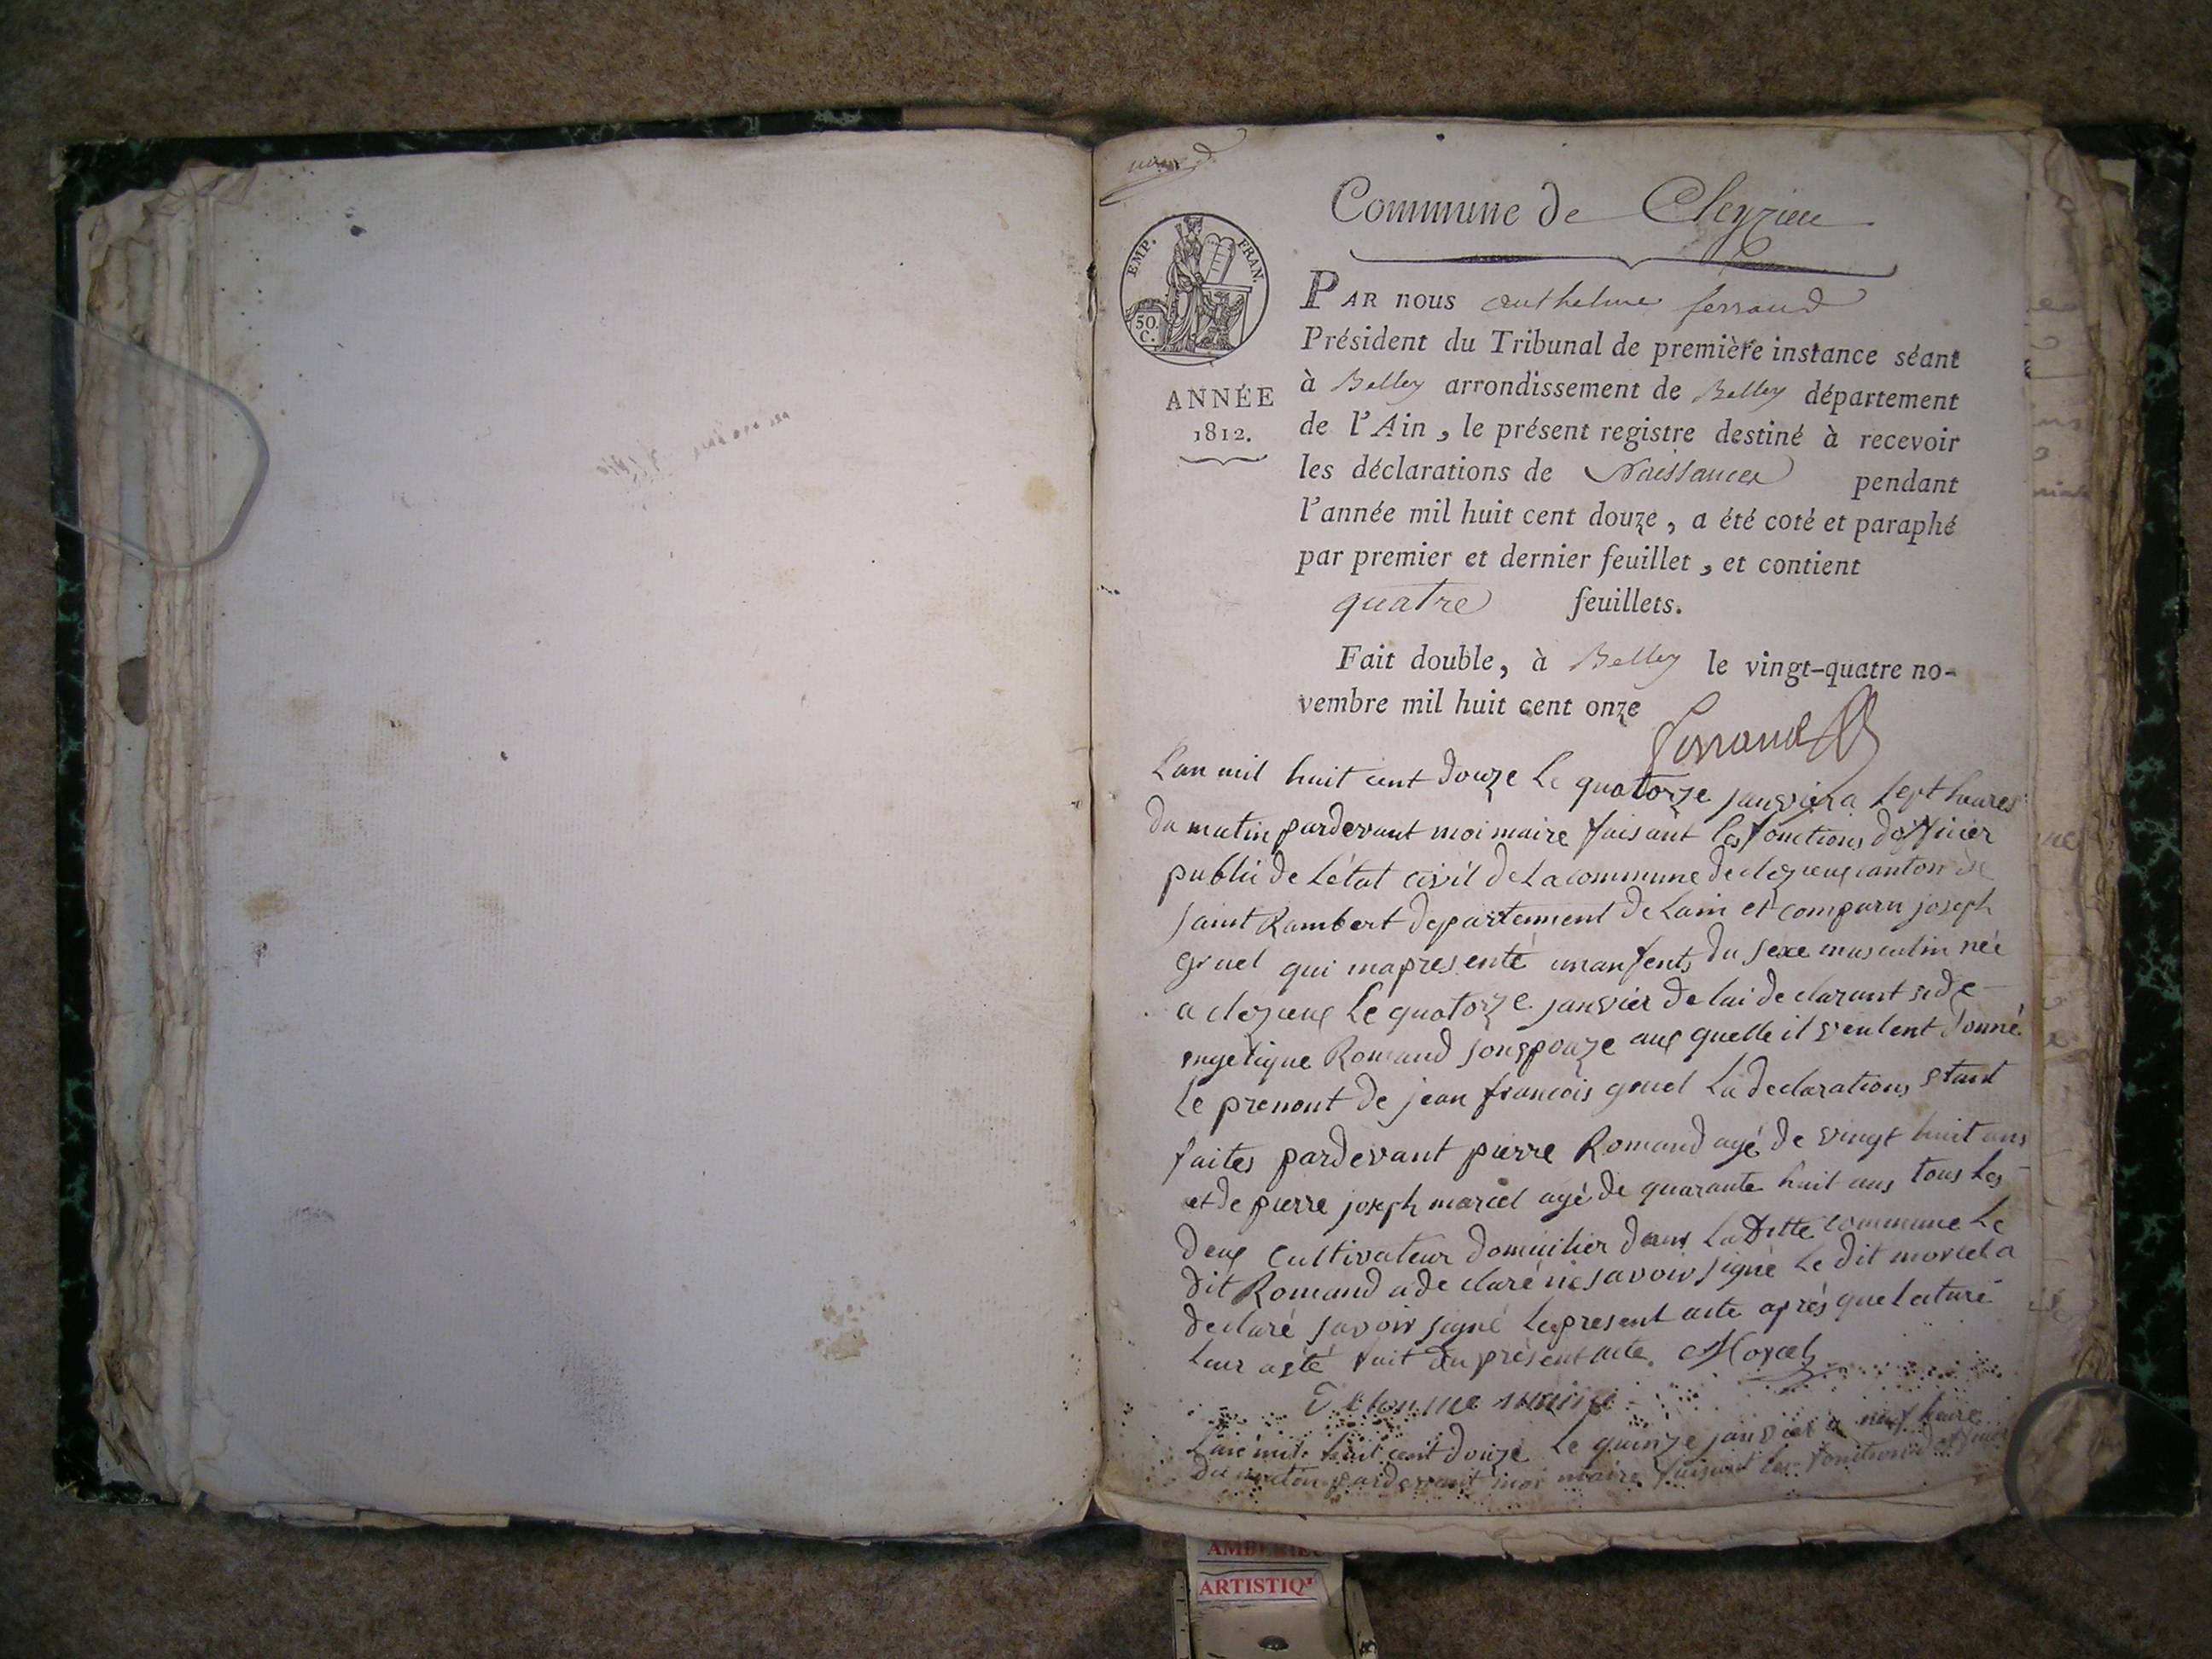 Commune de Cleyzieu
EMP. FRAN.
50.
C.
ANNÉE
1812.
PAR nous anthelme ferrand
Président du Tribunal de première instance séant
à Belley arrondissement de Belley département
de l'Ain, le présent registre destiné à recevoir
les déclarations de Naissances pendant
l'année mil huit cent douze, a été coté et paraphé
par premier et dernier feuillet, et contient
quatre feuillets.
Fait double, à Belley le vingt-quatre no-
vembre mil huit cent onze
Ferrand
Lan mil huit cent douze Le quatorze janvier a sept heures
du matin pardevant moi maire faisant les fonctions dofficier
public de Létat civil de La commune de clezieux canton de
saint Rambert departement de Lain et comparu joseph
gruel qui mapresenté unanfents du sexe masculin née
a clezieux Le quatorze janvier de lui declarant et de
engelique Romand son epouze aux quelle il veulent donné
Le prenont de jean francois gruel La declarations etant
faites pardevant pierre Romand agé de vingt huit ans
et de pierre joseph marcel agé de quarante huit ans tous les
deux Cultivateur domicilier dans La Ditte commune Le
dit Romand a de claré ne savoir signé Le dit morcel a
declaré savoir signé Le present acte après que Lecture
Leur a eté fait du présent acte. Morcel
maire
Lan mil huit cent douze Le quinze janvier a neuf heure
du matin pardevant moi maire faisant les fonction dofficier
AMBERIEU
ARTISTIQ